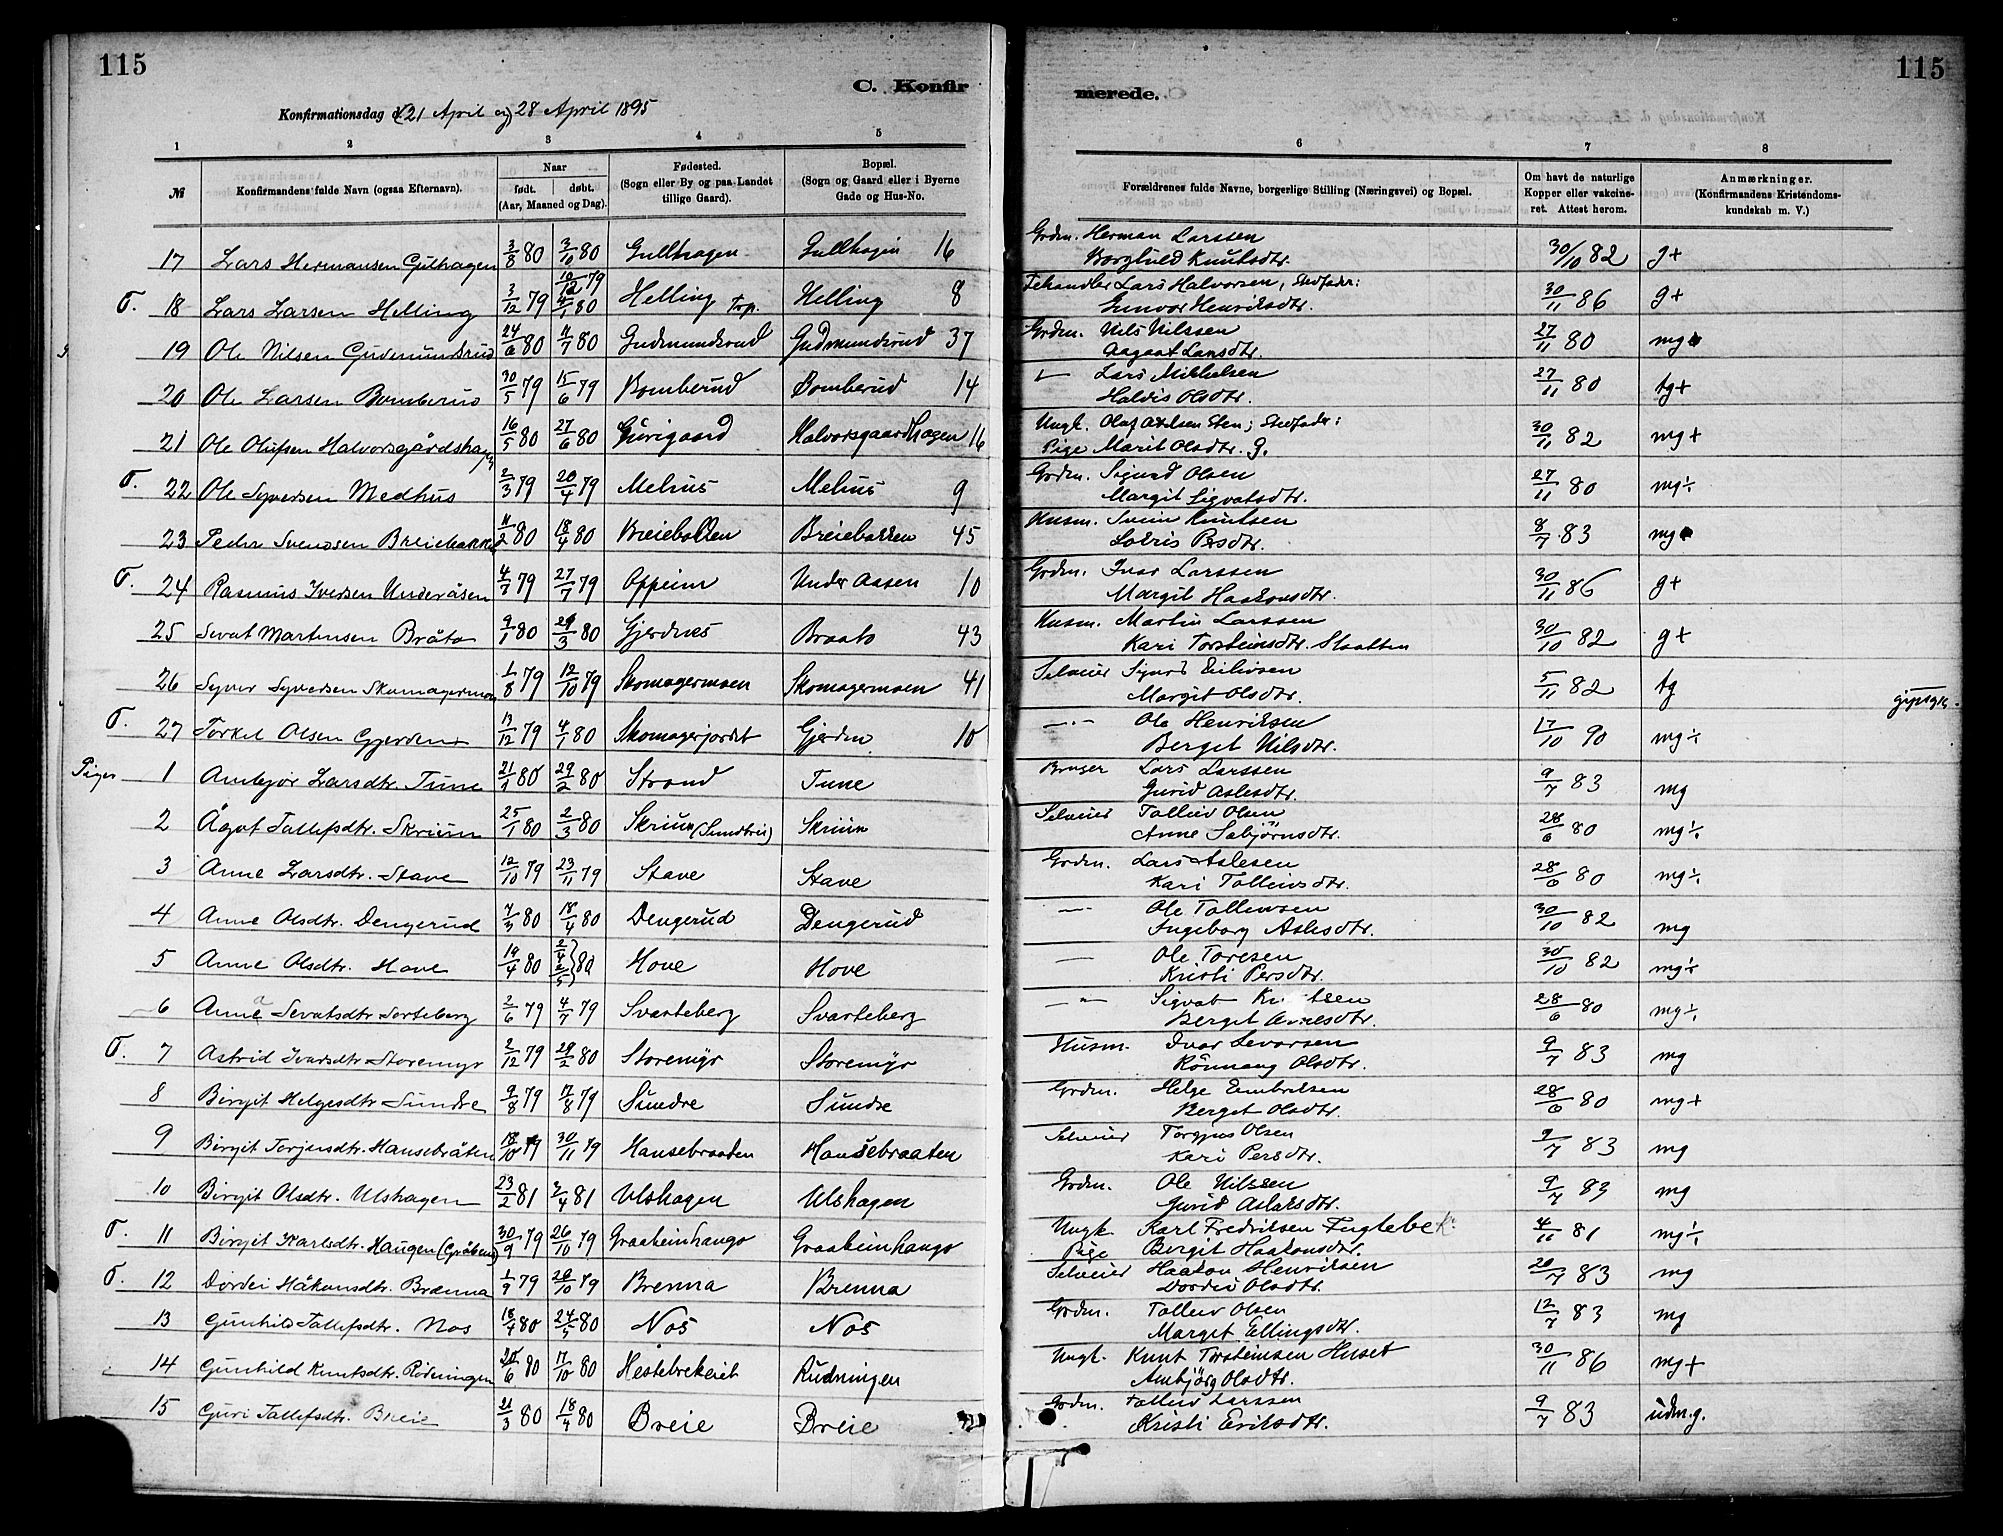 115
115
C. Konfir
merede.
Konfirmationsdag d. 21 April og 28 April 1895
1 2 3 4 5
6 7 8
№ Konfirmandens fulde Navn (ogsaa Efternavn). Naar født. døbt. (Aar, Maaned og Dag). Fødested. (Sogn eller By og paa Landet tillige Gaard). Bopæl. (Sogn og Gaard eller i Byerne Gade og Hus-No.
Forældrenes fulde Navne, borgerlige Stilling (Næringsvei) og Bopæl. Om havt de naturlige Kopper eller vakcineret. Attest herom. Anmærkninger. (Konfirmandens Kristendomskundskab m. V.)
17 Lars Hermansen Gulhagen 3/8 80 3/10 80 Gullhagen Gullhagen 16 Grdm. Herman Larssen
Borghild Knutsdtr. 30/10 82 g+
18 Lars Larsen Helling 3/12 79 10/12 79 4/1 80 Helling Trp. Helling 8 Fehandler Lars Halvorsen, Stedfader:
Gunvor Henriksdtr. 30/11 86 g+
19 Ole Nilsen Gudmundsrud 24/6 80 4/7 80 Gudmundsrud Gudmundsrud 37 Grdm. Nils Nilssen
Aagaat Larsdtr. 27/11 80 mg
20 Ole Larsen Bomberud 30/5 79 15/6 79 Bomberud Bomberud 14 Lars Mikkelsen
Haldis Olsdtr. 27/11 80 tg+
21 Ole Olufsen Halvorsgårdshagen 16/5 80 27/6 80 Gurigaard Halvorsgaardhagen 16 Ungk. Olaf Axelsen Sten; Stedfader:
Pige Marit Olsdtr. G. 30/11 82 mg+
22 Ole Syversen Medhus 2/3 79 20/4 79 Mehus Mehus 9 Grdm. Sigurd Olsen
Margit Sigvatsdtr. 27/11 80 mg÷
23 Peder Svendsen Breiebakke 11/2 80 18/4 80 Breiebakken Breiebakken 45 Husm. Svein Knutsen
Solvis Persdtr. 8/7 83 mg
24 Rasmus Iversen Underåsen 4/7 79 27/7 79 Oppeim Under Aasen 10 Grdm. Ivar Larssen
Margit Haakonsdtr. 30/11 86 g+
25 Sevat Martinsen Bråto 9/1 80 29/3 80 Gjerdnes Braato 43 Husm. Martin Larssen
Kari Torsteinsdtr. Slaatten 30/10 82 g+
26 Syver Syversen Skomagermoen 1/8 79 12/10 79 Skomagermoen Skomagermoen 41 Selveier Sjurd Eiliosen
Margit Olsdtr. 5/11 82 tg
27 Torkel Olsen Gjerden 13/12 79 4/1 80 Skomagerjordet Gjerden 10 Ole Henriksen
Berget Nilsdtr. 17/10 90 mg÷
Piger 1 Ambjør Larsdtr. Tune 21/1 80 29/2 80 Strand Tune Bruger Lars Larssen
Gurid Aslesdtr. 9/7 83 mg
2 Ågot Tollefsdtr. Skrium 25/1 80 2/3 80 Skrium (Sundbrei) Skrium Selveier Tolleiv Olsen
Anne Sebjörnsdtr. 28/6 80 mg÷
3 Anne Larsdtr. Stave 12/10 79 23/11 79 Stave Stave Grdm. Lars Aslesen
Kari Tolleivsdtr. 28/6 80 mg÷
4 Anne Olsdtr. Dengerud 7/3 80 18/4 80 Dengerud Dengerud Ole Tolleivsen
Ingeborg Aslesdtr. 30/10 82 mg
5 Anne Olsdtr. Hove 19/4 80 2/4 2/5 80 Hove Hove Ole Toresen
Kristi Persdtr. 30/10 82 mg÷
6 Anne Sevatsdtr Sorteberg 2/6 79 4/7 79 Svarteberg Svarteberg Sigvat Knutsen
Berget Arnesdtr. 28/6 80 mg÷
7 Astrid Ivarsdtr Storemyr 2/12 79 29/2 80 Storemyr Storemyr Husm. Ivar Sevatsen
Rönnaug Olsdtr. 9/7 83 mg
8 Birgit Helgesdtr Sundre 9/8 79 17/8 79 Sundre Sundre Grdm. Helge Embriksen
Berget Olsdtr. 28/6 80 mg+
9 Birgit Torjusdtr. Hansebråten 18/10 79 30/11 79 Hansebraaten Hansebraaten Selveier Torgjus Olsen
Kari Persdtr. 9/7 83 mg
10 Birgit Olsdtr. Ulshagen 23/2 81 3/4 81 Ulshagen Ulshagen Grdm. Ole Nilssen
Gurid Aslaksdtr. 9/7 83 mg
11 Birgit Karlsdtr. Haugen 30/9 79 26/10 79 Graaheimhaugo Graaheimhaugo Ungk. Karl Fredriksen Fuglebek
Pige Bergit Haakonsdtr. 4/11 81 mg÷
12 Dordei Håkonsdtr. Brenna 1/9 79 28/10 79 Brenna Brenna Selveier Haakon Henriksen
Dordei Olsdtr. 20/7 83 mg
13 Gunhild Tollefsdtr. Nos 18/4 80 24/5 80 Nos Nos Grdm. Tolleiv Olsen
Marget Ellingsdtr. 12/7 83 mg
14 Gunhild Knutsdtr. Rödningen 25/6 80 17/10 80 Rudningen Ungk. Knut Torsteinsen Huset
Ambjörg Olsdtr. 30/11 86 mg+
15 Guri Tollefsdtr. Breie 21/3 80 18/4 80 Breie Breie Grdm. Tolleiv Larssen
Kristi Eriksdtr. 9/7 83 udm.g.